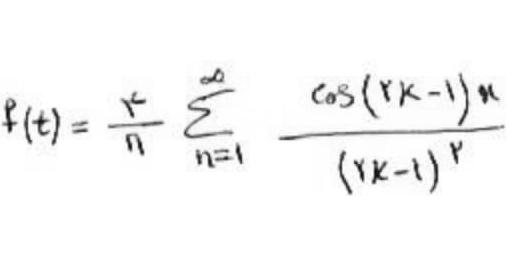 f(t) = ۴/π ∑_{n=۱}^{∞} cos(۲k-۱)x / (۲k-۱)^۲